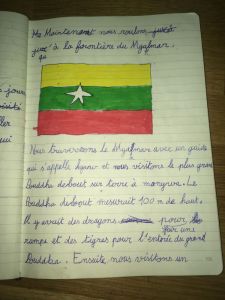 Maintenant nous roulons
jus' à la forontière du Myafmar.
Nous traversons le Myafmar avec un guide
qui s'appelle et nous visitons le plus grand
Bouddha debout sur terre à . Le
Bouddha debout mesurait 100 m de haut.
Il y avait des dragons pour
faire une
rampe et des tigres pour l'entrée du grand
Bouddha. Ensuite nous visitons un